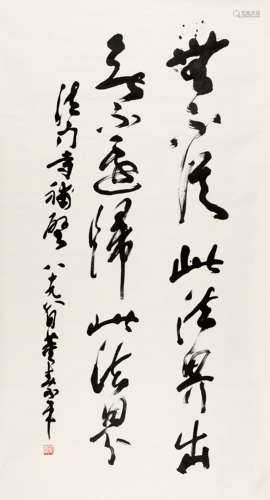 無不從此法界出
無不還歸此法界
法門寺補壁 八十九翁董壽平